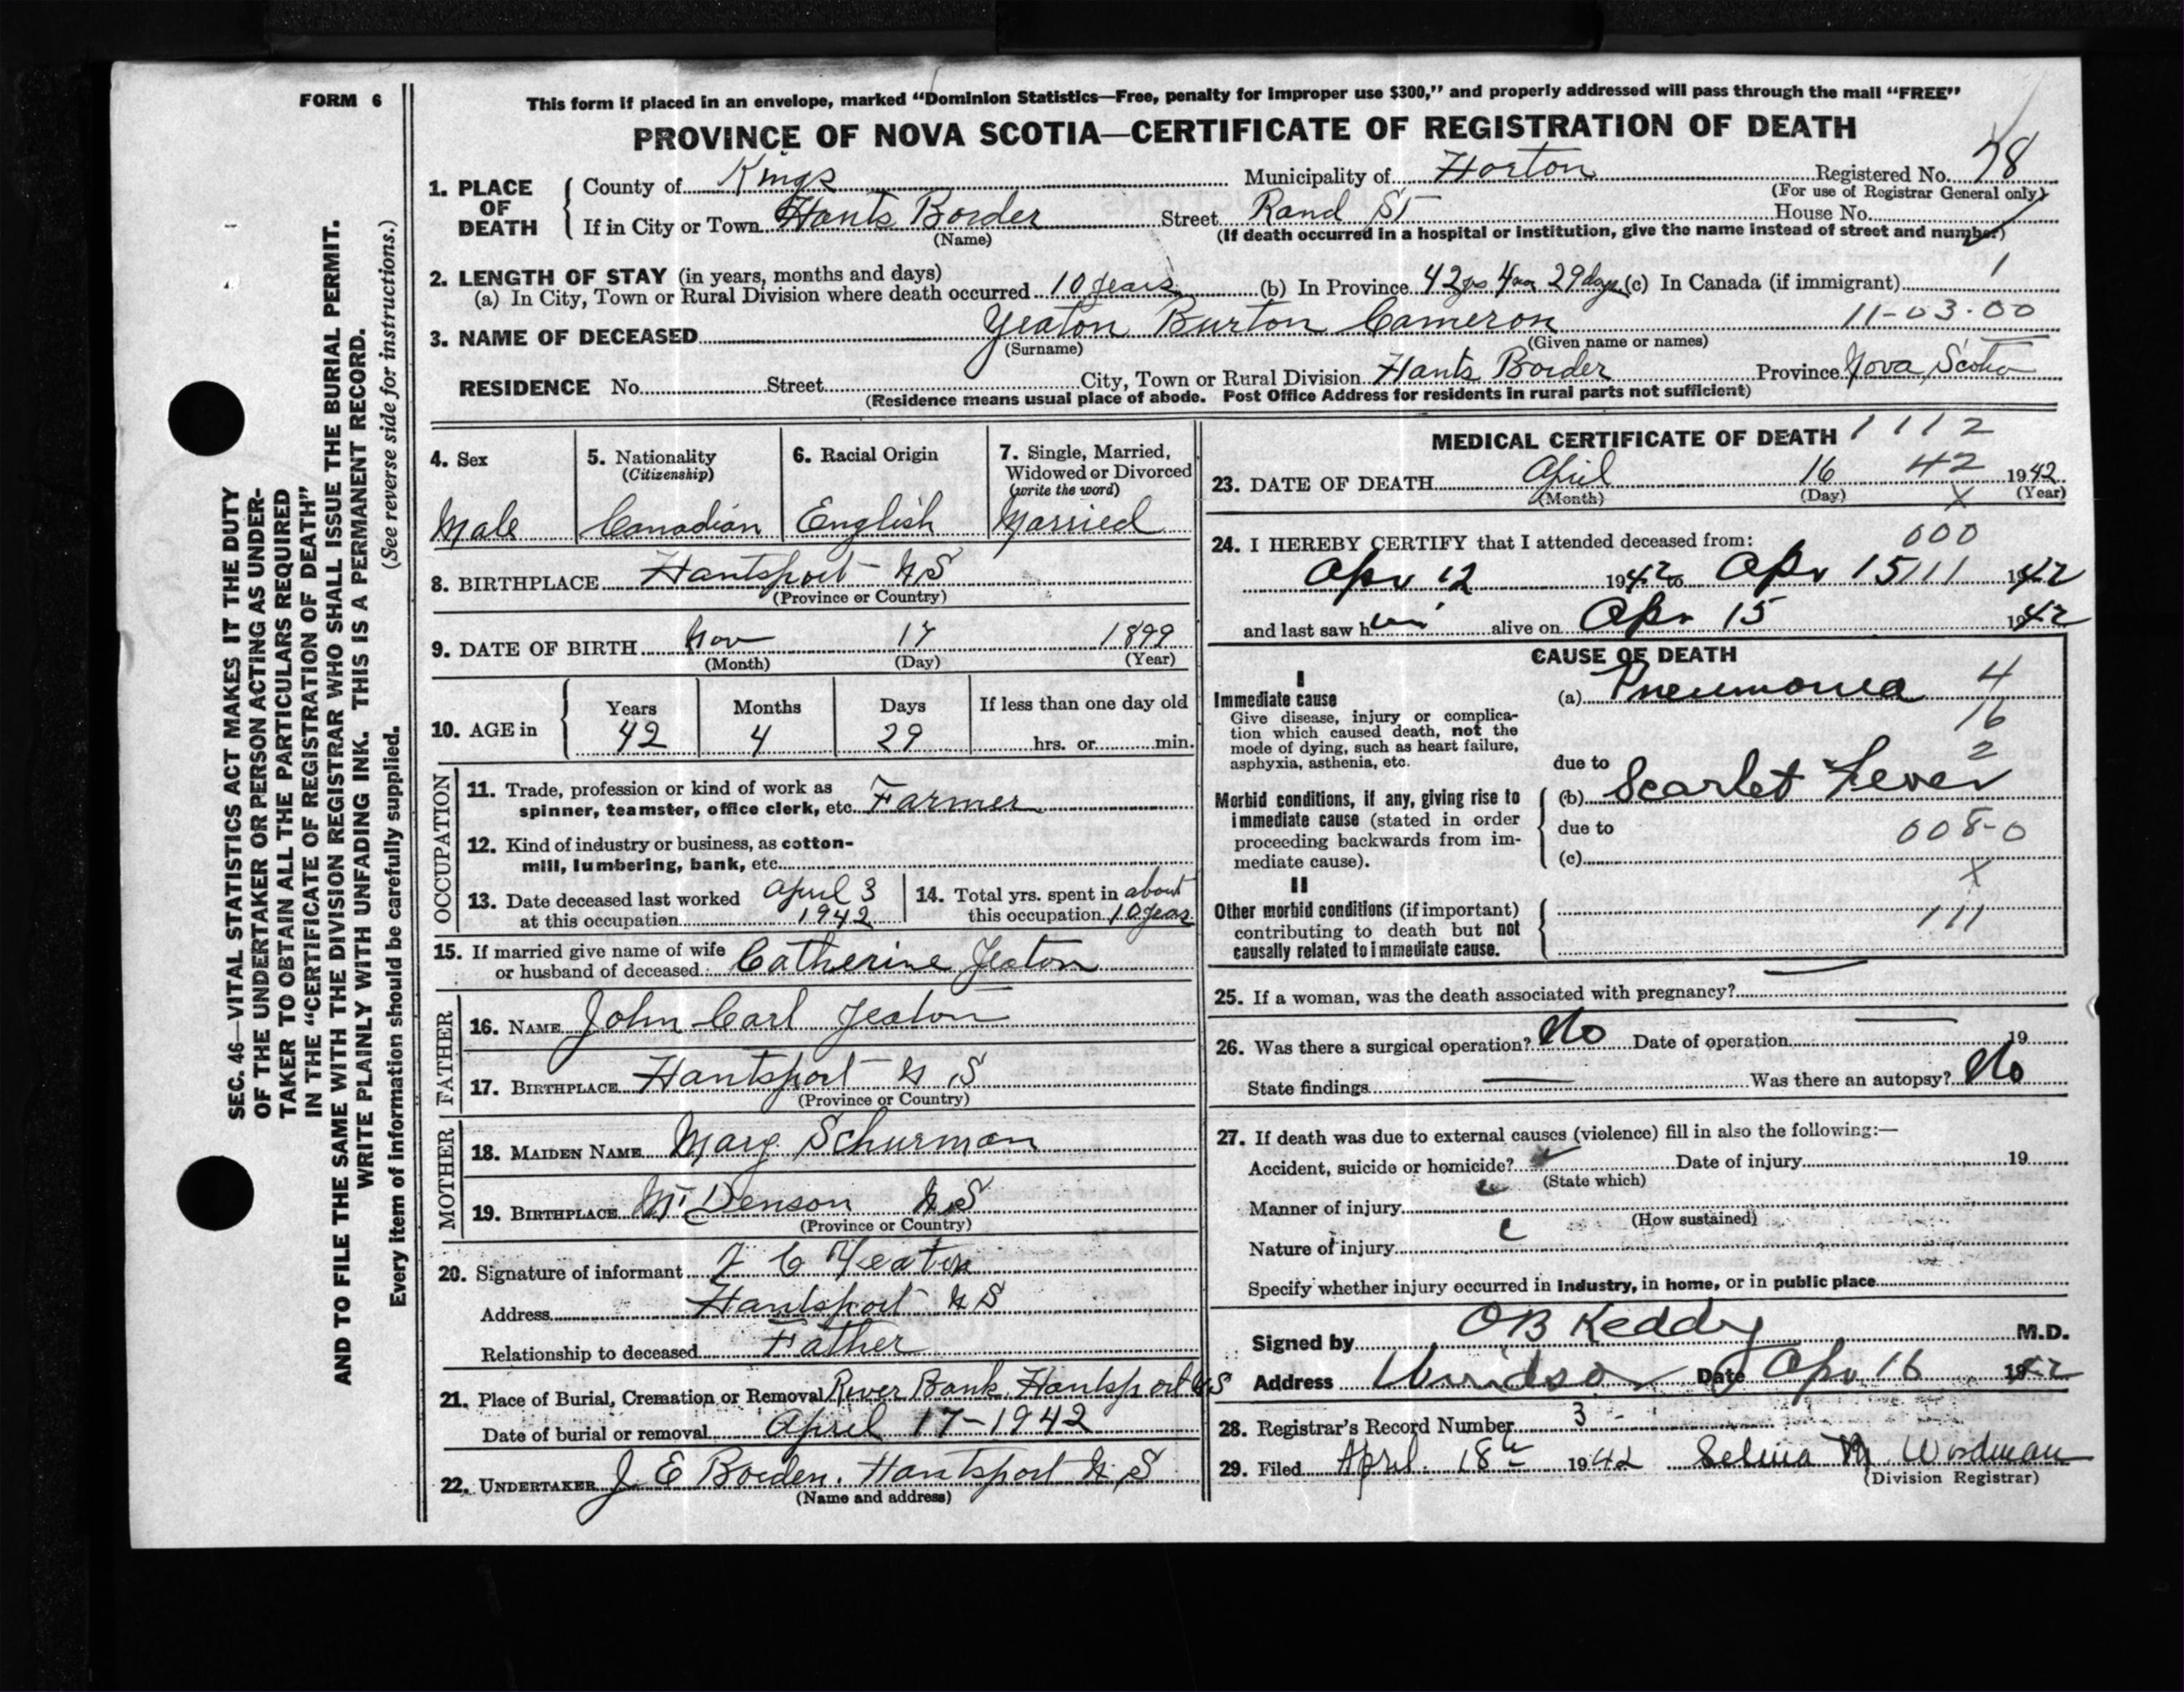 FORM 6
This form if placed in an envelope, marked “Dominion Statistics—Free, penalty for improper use $300,” and properly addressed will pass through the mail “FREE”
PROVINCE OF NOVA SCOTIA—CERTIFICATE OF REGISTRATION OF DEATH
1. PLACE OF DEATH County of Kings Municipality of Horton Registered No. 78
(For use of Registrar General only)
If in City or Town Hants Border Street Rand St House No.
(Name) (If death occurred in a hospital or institution, give the name instead of street and number)
2. LENGTH OF STAY (in years, months and days) 1
(a) In City, Town or Rural Division where death occurred 10 years (b) In Province 42 yrs 4 mos 29 days (c) In Canada (if immigrant)
3. NAME OF DECEASED Yeaton Burton Cameron 11-03-00
(Surname) (Given name or names)
RESIDENCE No. Street City, Town or Rural Division Hants Border Province Nova Scotia
(Residence means usual place of abode. Post Office Address for residents in rural parts not sufficient)
4. Sex Male
5. Nationality (Citizenship) Canadian
6. Racial Origin English
7. Single, Married, Widowed or Divorced (write the word) Married
8. BIRTHPLACE Hantsport N S
(Province or Country)
9. DATE OF BIRTH Nov 17 1899
(Month) (Day) (Year)
10. AGE in Years Months Days If less than one day old
42 4 29 hrs. or min.
OCCUPATION
11. Trade, profession or kind of work as
spinner, teamster, office clerk, etc. Farmer
12. Kind of industry or business, as cotton-
mill, lumbering, bank, etc.
13. Date deceased last worked at this occupation April 3 1942
14. Total yrs. spent in this occupation about 10 years
15. If married give name of wife
or husband of deceased Catherine Yeaton
FATHER
16. NAME John Carl Yeaton
17. BIRTHPLACE Hantsport N S
(Province or Country)
MOTHER
18. MAIDEN NAME Mary Schurman
19. BIRTHPLACE Mt Denson N S
(Province or Country)
20. Signature of informant J C Yeaton
Address Hantsport N S
Relationship to deceased Father
21. Place of Burial, Cremation or Removal River Bank Hantsport N S
Date of burial or removal April 17-1942
22. UNDERTAKER J E Borden. Hantsport N. S
(Name and address)
MEDICAL CERTIFICATE OF DEATH 1112
23. DATE OF DEATH April 16 42 1942
(Month) (Day) X (Year)
24. I HEREBY CERTIFY that I attended deceased from: 000
Apr 12 1942 to Apr 15 111 1942
and last saw him alive on Apr 15 1942
CAUSE OF DEATH
I
Immediate cause (a) Pneumonia 4
Give disease, injury or complica-
tion which caused death, not the 16
mode of dying, such as heart failure,
asphyxia, asthenia, etc. due to 2
Morbid conditions, if any, giving rise to (b) Scarlet Fever
immediate cause (stated in order due to 008-0
proceeding backwards from im-
mediate cause). (c)
II X
Other morbid conditions (if important)
contributing to death but not 111
causally related to immediate cause.
25. If a woman, was the death associated with pregnancy? —
26. Was there a surgical operation? No Date of operation — 19
State findings — Was there an autopsy? No
27. If death was due to external causes (violence) fill in also the following:—
Accident, suicide or homicide? Date of injury 19
(State which)
Manner of injury
(How sustained)
Nature of injury
Specify whether injury occurred in Industry, in home, or in public place
Signed by O B Keddy M.D.
Address Windsor Date Apr 16 1942
28. Registrar's Record Number 3
29. Filed April 18th 1942 Selina M. Woodman
(Division Registrar)
SEC. 46—VITAL STATISTICS ACT MAKES IT THE DUTY
OF THE UNDERTAKER OR PERSON ACTING AS UNDER-
TAKER TO OBTAIN ALL THE PARTICULARS REQUIRED
IN THE “CERTIFICATE OF REGISTRATION OF DEATH”
AND TO FILE THE SAME WITH THE DIVISION REGISTRAR WHO SHALL ISSUE THE BURIAL PERMIT.
WRITE PLAINLY WITH UNFADING INK. THIS IS A PERMANENT RECORD.
Every item of information should be carefully supplied. (See reverse side for instructions.)